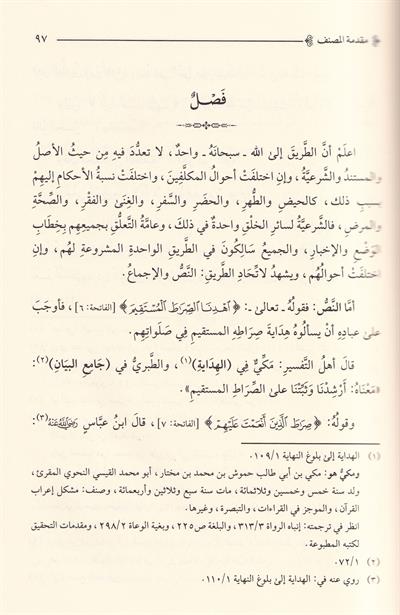 مقدمة المصنف
٩٧
فَصْلٌ
اعلَمْ أنَّ الطَّريقَ إلىٰ الله ـ سبحانَهُ ـ واحدٌ، لا تعدُّدَ فيهِ مِن حيثُ الأصلُ
والمستندُ والشَّرعيَّةُ، وإن اختلفَتْ أحوالُ المكلَّفِينَ، واختلفَتْ نسبةُ الأحكامِ إليهِم
بسببِ ذلك، كالحيضِ والطُّهرِ، والحضَرِ والسَّفَرِ، والغِنَىٰ والفقْرِ، والصِّحَّةِ
والمرضِ، فالشَّرعيَّةُ لسائرِ الخلْقِ واحدةٌ في ذلكَ، وعامَّةُ التَّعلُّقِ بجميعِهِم بخِطَابِ
الوَضْعِ والإخبارِ، والجميعُ سَالِكُونَ في الطَّريقِ الواحدةِ المشروعةِ لهُم، وإنِ
اختلفَتْ أحوالُهُم، ويشهدُ لاتِّحادِ الطَّريقِ: النَّصُّ والإجماعُ.
أمَّا النَّصُّ: فقولُهُ ـ تعالىٰ ـ: ﴿ٱهْدِنَا ٱلصِّرَٰطَ ٱلْمُسْتَقِيمَ﴾ [الفاتحة: ٦]، فأوجَبَ
علىٰ عبادِهِ أنْ يسألُوهُ هِدايةَ صِراطِهِ المستقيمِ في صَلَواتِهِم.
قالَ أهلُ التَّفسيرِ: مَكِّيٌّ في (الهِدَايةِ)(١)، والطَّبريُّ في (جَامِعِ البَيَانِ)(٢):
«مَعْنَاهُ: أَرْشِدْنَا وَثَبِّتْنَا علىٰ الصِّرَاطِ المستقيمِ».
وقولُهُ: ﴿صِرَٰطَ ٱلَّذِينَ أَنْعَمْتَ عَلَيْهِمْ﴾ [الفاتحة: ٧]، قالَ ابنُ عبَّاسٍ رَضِيَ اللهُ عَنْهُ(٣):
(١) الهداية إلىٰ بلوغ النهاية ١/١٠٩.
ومكيٌّ هو: مكي بن أبي طالب حموش بن محمد بن مختار، أبو محمد القيسي النحوي المقرئ،
ولد سنة خمس وخمسين وثلاثمائة، مات سنة سبع وثلاثين وأربعمائة، وصنف: مشكل إعراب
القرآن، والموجز في القراءات، والتبصرة، وغيرها.
انظر في ترجمته: إنباه الرواة ٣/٣١٣، والبلغة ص٢٢٥، وبغية الوعاة ٢/٢٩٨، ومقدمات التحقيق
لكتبه المطبوعة.
(٢) ١/٧٢.
(٣) روي عنه في: الهداية إلىٰ بلوغ النهاية ١/١١٠.